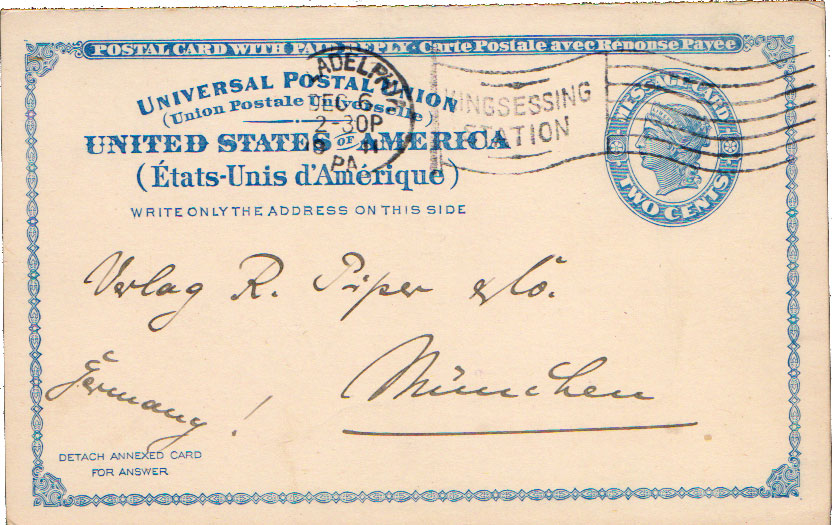 POSTAL CARD WITH PAID REPLY · Carte Postale avec Réponse Payée
UNIVERSAL POSTAL UNION
(Union Postale Universelle)
UNITED STATES OF AMERICA
(États-Unis d'Amérique)
WRITE ONLY THE ADDRESS ON THIS SIDE
ADELPHIA
DEC 6
2-30P
PA.
KINGSESSING
STATION
MESSAGE CARD
TWO CENTS
Verlag R. Piper & Co.
München
Germany!
DETACH ANNEXED CARD
FOR ANSWER